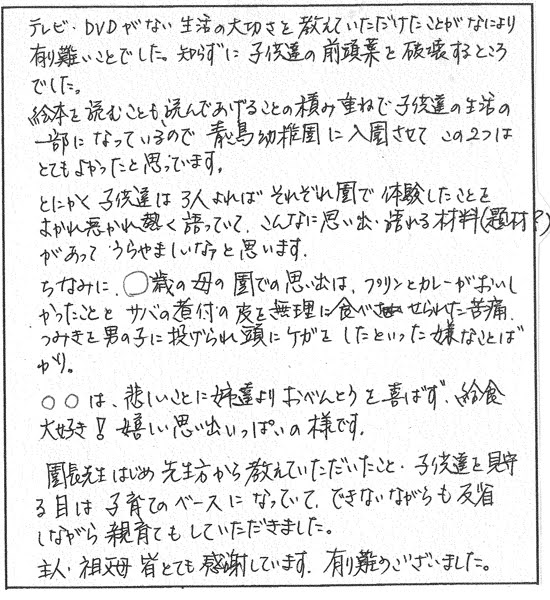 テレビ・DVDがない生活の大切さを教えていただけたことがなにより
有り難いことでした。知らずに子供達の前頭葉を破壊するところ
でした。
絵本を読むことも読んであげることの積み重ねで子供達の生活の
一部になっているので 幼稚園に入園させて この2つは
とてもよかったと思っています。
とにかく子供達は3人よればそれぞれ園で体験したことを
よかれ悪かれ熱く語っていて、こんなに思い出・語れる材料(題材?)
があって うらやましいなぁと思います。
ちなみに、○歳の母の園での思い出は、プリンとカレーがおいし
かったことと サバの煮付の皮を無理に食べさせられた苦痛、
つみきを男の子に投げられ頭にケガをしたといった嫌なことば
かり。
○○は、悲しいことに姉達よりおべんとうを喜ばず、給食
大好き! 嬉しい思い出いっぱいの様です。
園長先生はじめ先生方から教えていただいたこと・子供達を見守
る目は子育てのベースになっていて、できないながらも反省
しながら親育てもしていただきました。
主人・祖父母 皆とても感謝しています。有り難うございました。